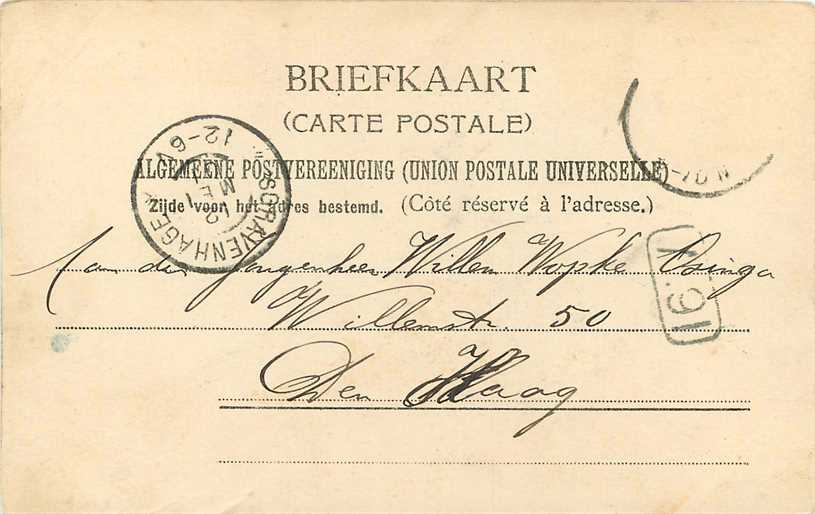 BRIEFKAART
(CARTE POSTALE)
ALGEMEENE POSTVEREENIGING (UNION POSTALE UNIVERSELLE)
Zijde voor het adres bestemd. (Côté réservé à l'adresse.)
'S GRAVENHAGE
12-6V
MEI
Aan den Jongenheer Willem Wopke Osinga
Willemstr. 50
Den Haag